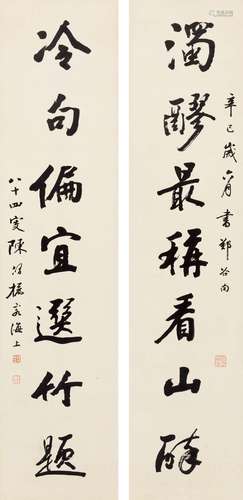 濁醪最稱看山醉
辛巳歲六月書鄭谷句
冷句偏宜選竹題
八十四叟陳客海上